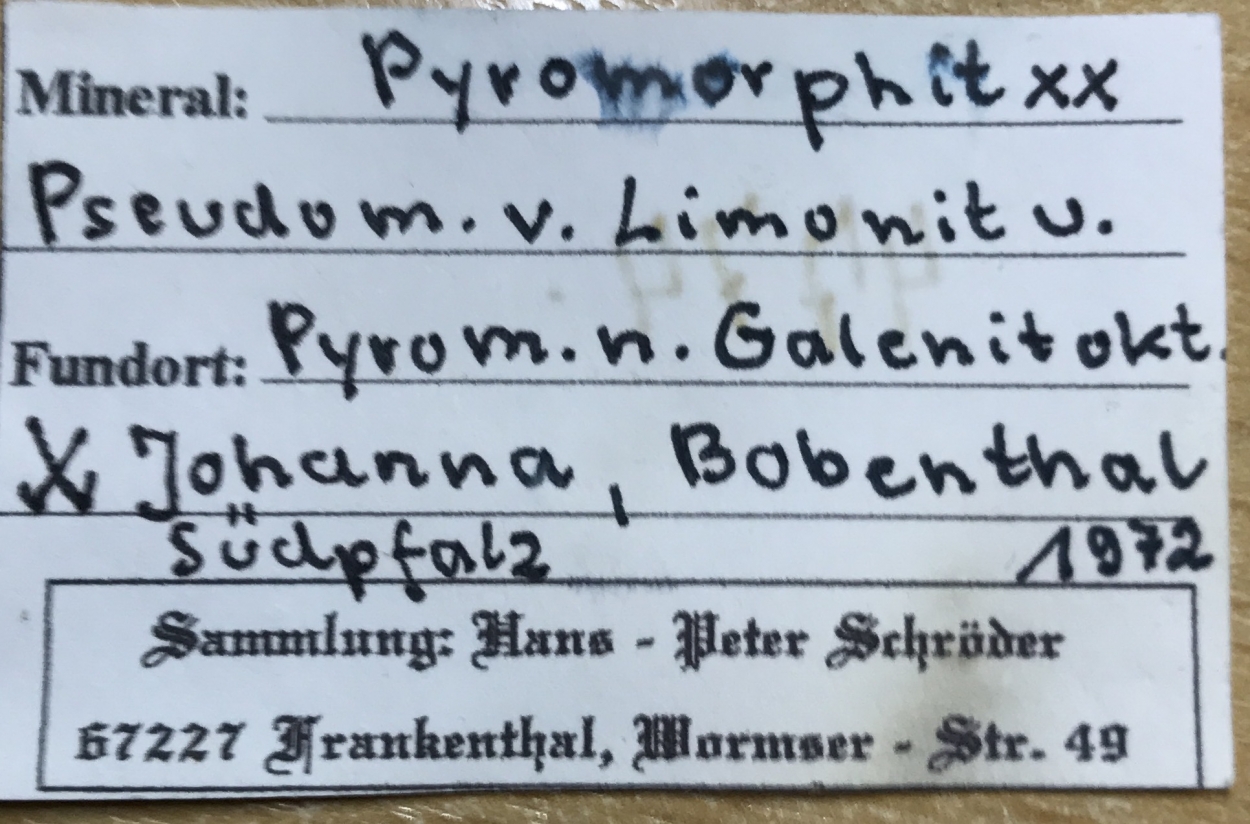 Mineral: Pyromorphit xx
Pseudom. v. Limonit u.
Fundort: Pyrom. n. Galenit okt.
⚒ Johanna, Bobenthal
Südpfalz 1972
Sammlung: Hans - Peter Schröder
67227 Frankenthal, Wormser - Str. 49